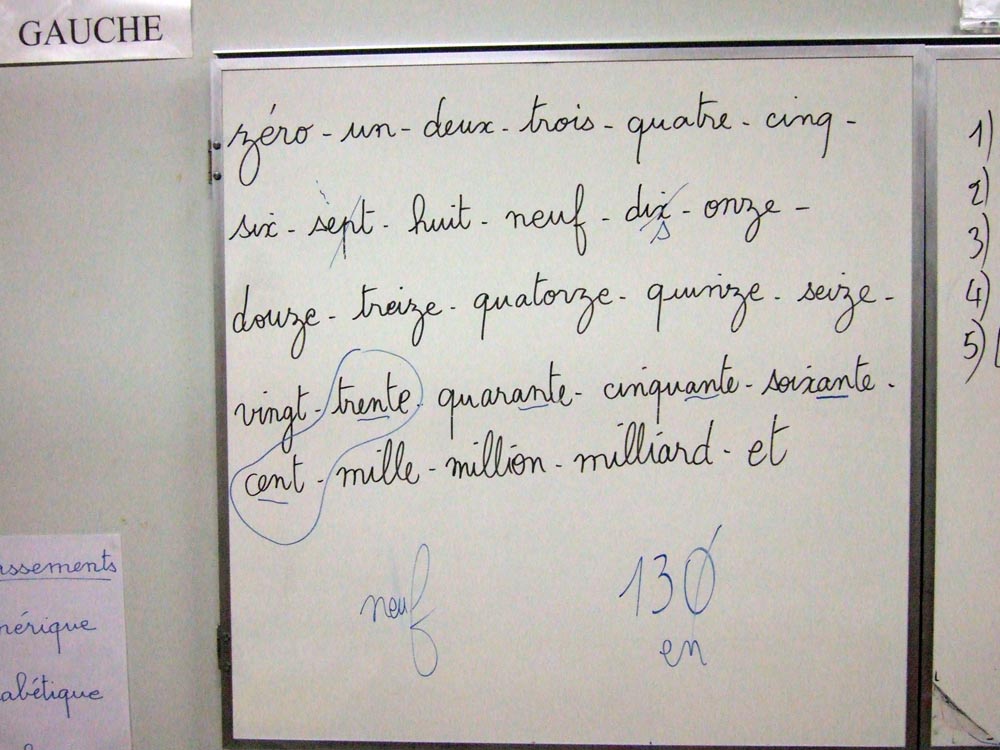 GAUCHE
zéro - un - deux - trois - quatre - cinq -
six - sept - huit - neuf - dix - onze -
s
douze - treize - quatorze - quinze - seize -
vingt - trente - quarante - cinquante - soixante -
cent - mille - million - milliard - et
neuf
130
en
1)
2)
3)
4)
5)
ssements
érique
abétique